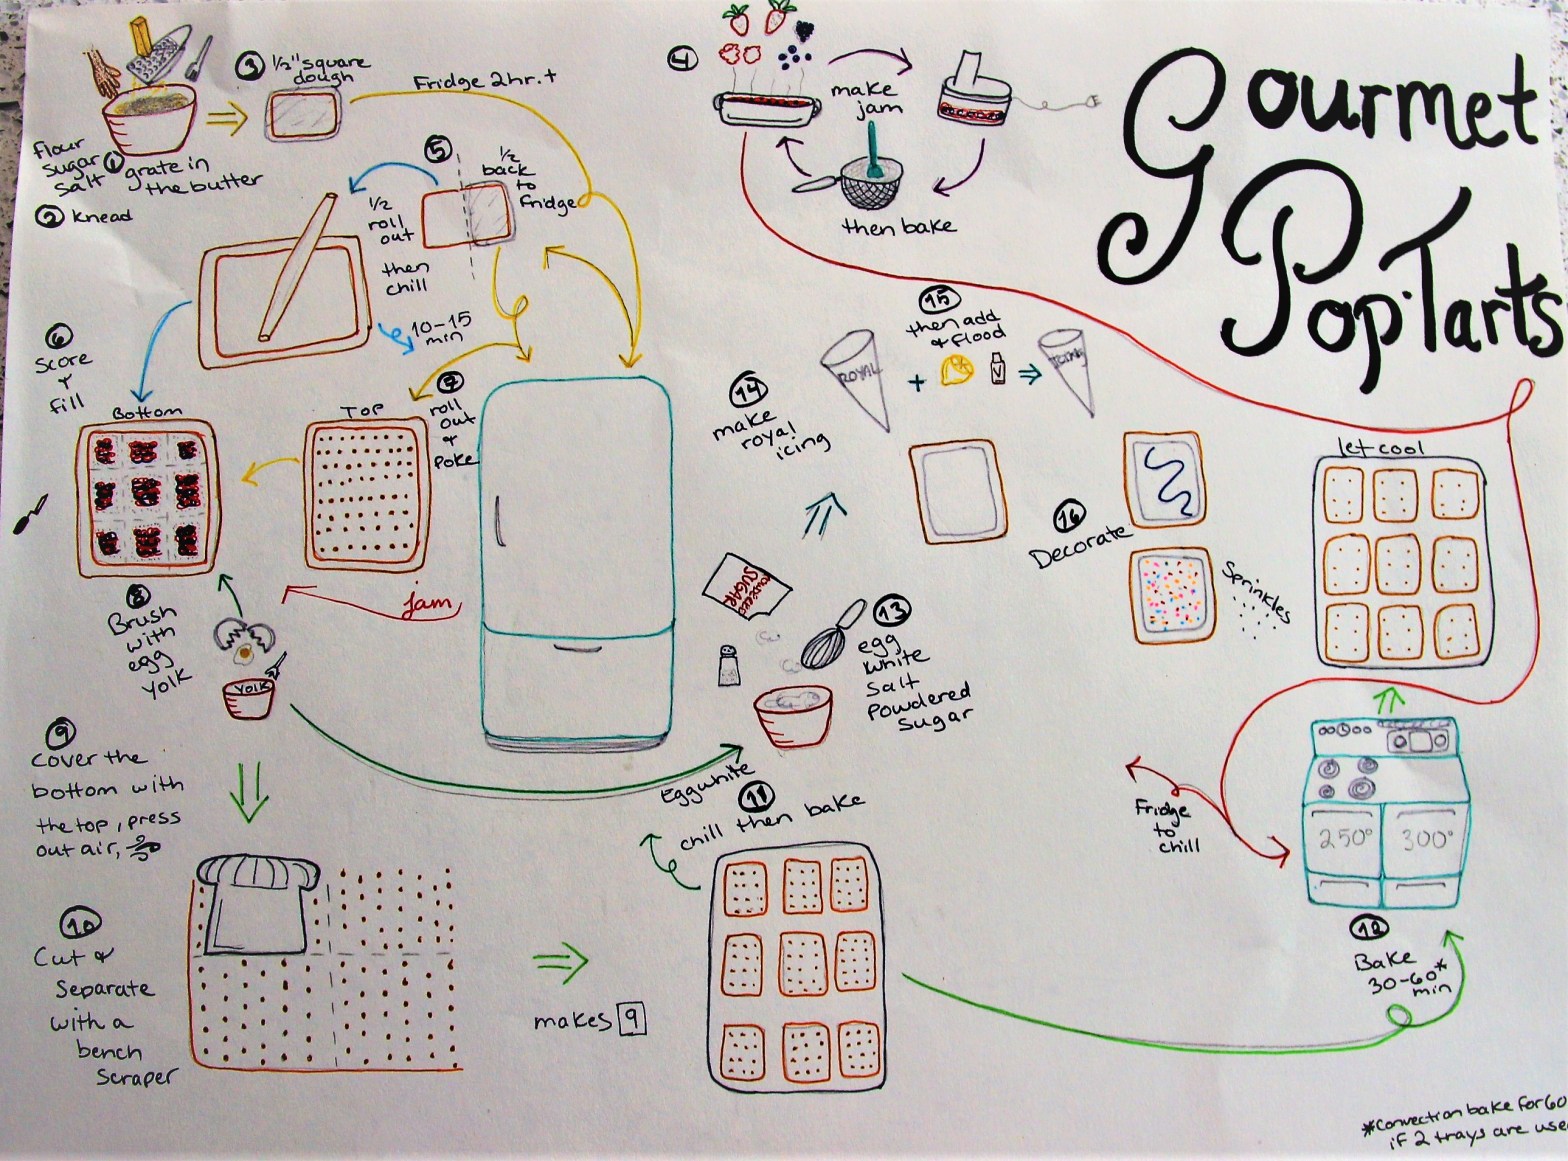 Gourmet
PopTarts
flour
sugar
salt
① grate in
the butter
② knead
③ 1/2" square
dough
Fridge 2hr.+
④
make
jam
then bake
⑤
1/2
back
to
fridge
1/2
roll
out
then
chill
10-15
min
⑥
Score
+
fill
Bottom
Top
⑦
roll
out +
poke
jam
⑧
Brush
with
egg
yolk
YOLK
⑨
Cover the
bottom with
the top, press
out air,
⑩
Cut &
Separate
with a
bench
Scraper
makes 9
⑪
chill then bake
⑫
Bake
30-60*
min
250° 300°
Fridge
to
chill
let cool
Eggwhite
⑬
egg
white
salt
Powdered
Sugar
POWDERED
SUGAR
⑭
make
royal
icing
⑮
then add
& flood
ROYAL + V
ICING
⑯
Decorate
Sprinkles
*Convection bake for 60
if 2 trays are used